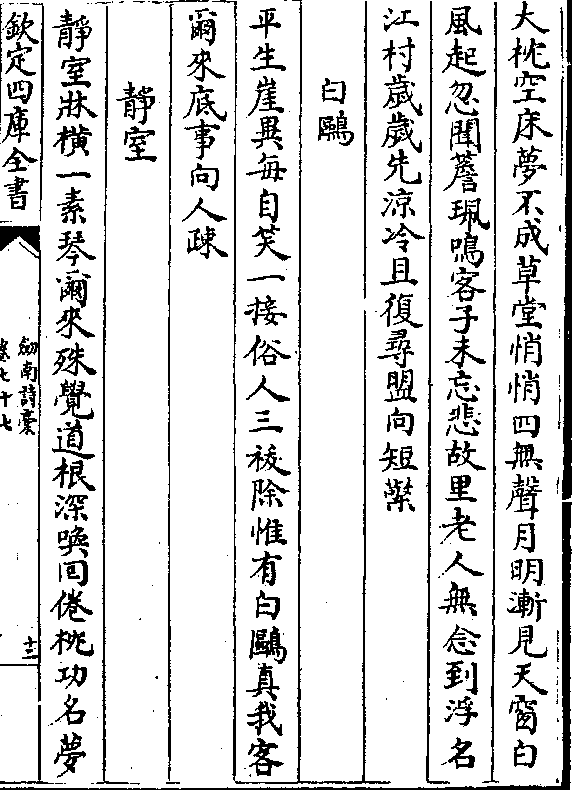 大枕空床夢不成草堂悄悄四無聲月明漸見天窗白
風起忽聞簷珮鳴客子未忘悲故里老人無念到浮名
江村歲歲先涼冷且復尋盟向短檠
白鷗
平生崖異每自笑一接俗人三祓除惟有白鷗真我客
爾來底事向人疎
靜室
靜室牀橫一素琴爾來殊覺道根深喚回倦枕功名夢
欽定四庫全書
劒南詩稾
卷七十七
十三